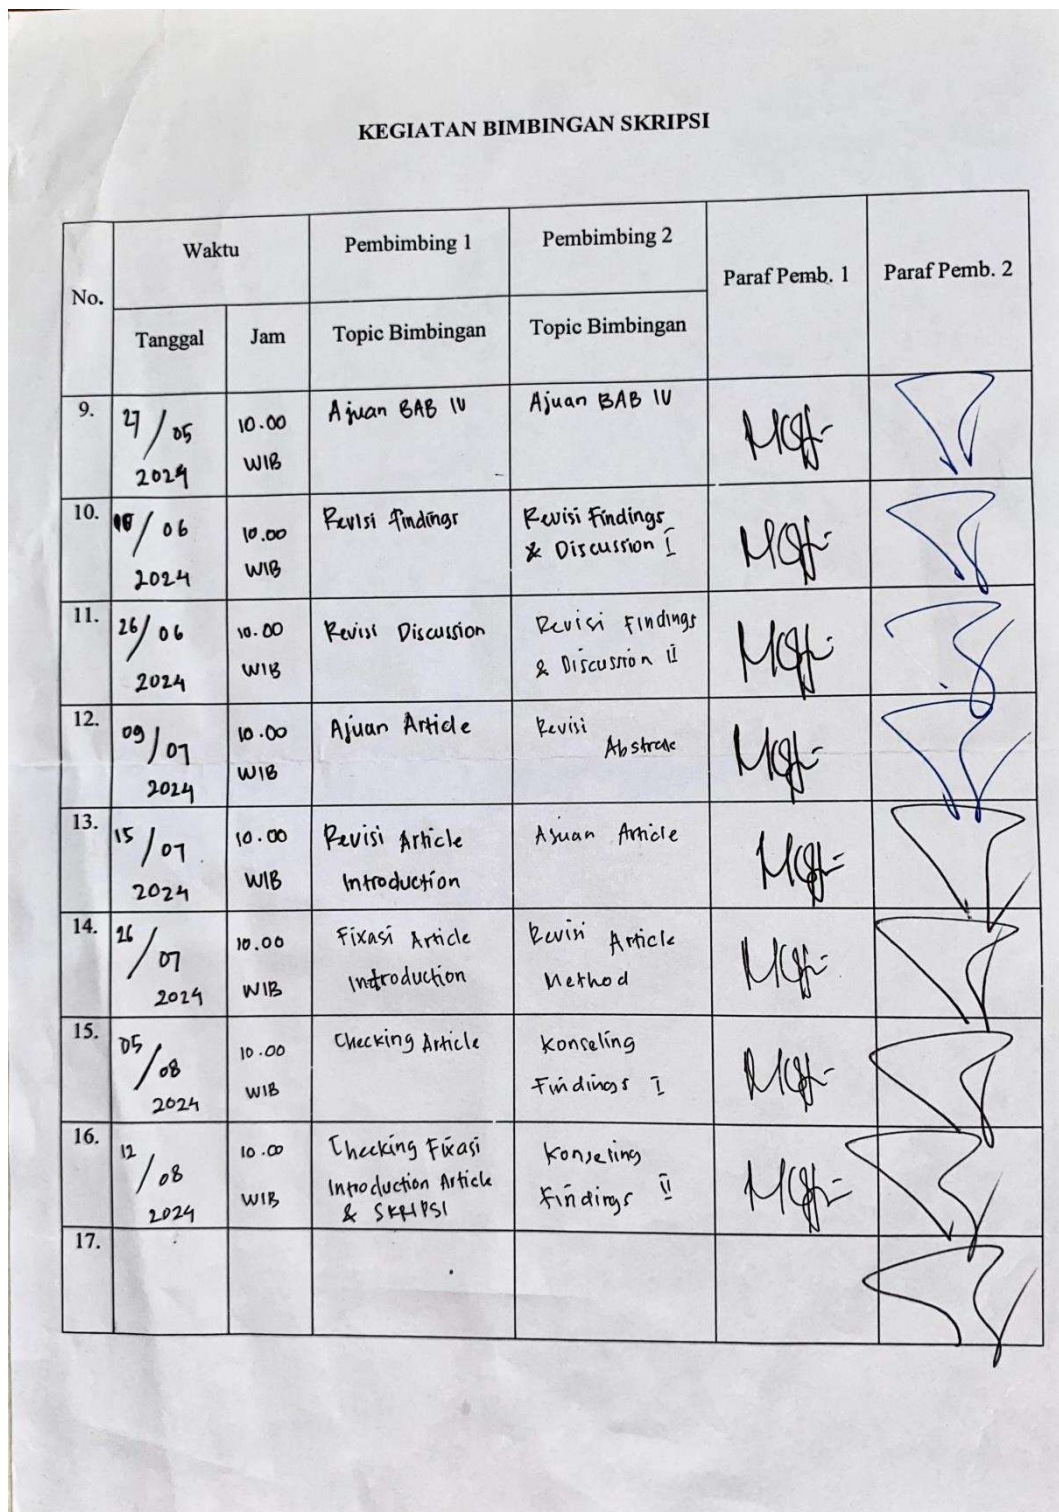 KEGIATAN BIMBINGAN SKRIPSI
No. Waktu Pembimbing 1 Pembimbing 2 Paraf Pemb. 1 Paraf Pemb. 2
Tanggal Jam Topic Bimbingan Topic Bimbingan
9. 27/05 2024 10.00 WIB Ajuan BAB IV Ajuan BAB IV
10. /06 2024 10.00 WIB Revisi findings Revisi Findings & Discussion I
11. 26/06 2024 10.00 WIB Revisi Discussion Revisi Findings & Discussion II
12. 09/07 2024 10.00 WIB Ajuan Article Revisi Abstrak
13. 15/07 2024 10.00 WIB Revisi Article Introduction Ajuan Article
14. 26/07 2024 10.00 WIB Fixasi Article Introduction Revisi Article Method
15. 05/08 2024 10.00 WIB Checking Article Konseling Findings I
16. 12/08 2024 10.00 WIB Checking Fixasi Introduction Article & SKRIPSI Konseling Findings II
17.